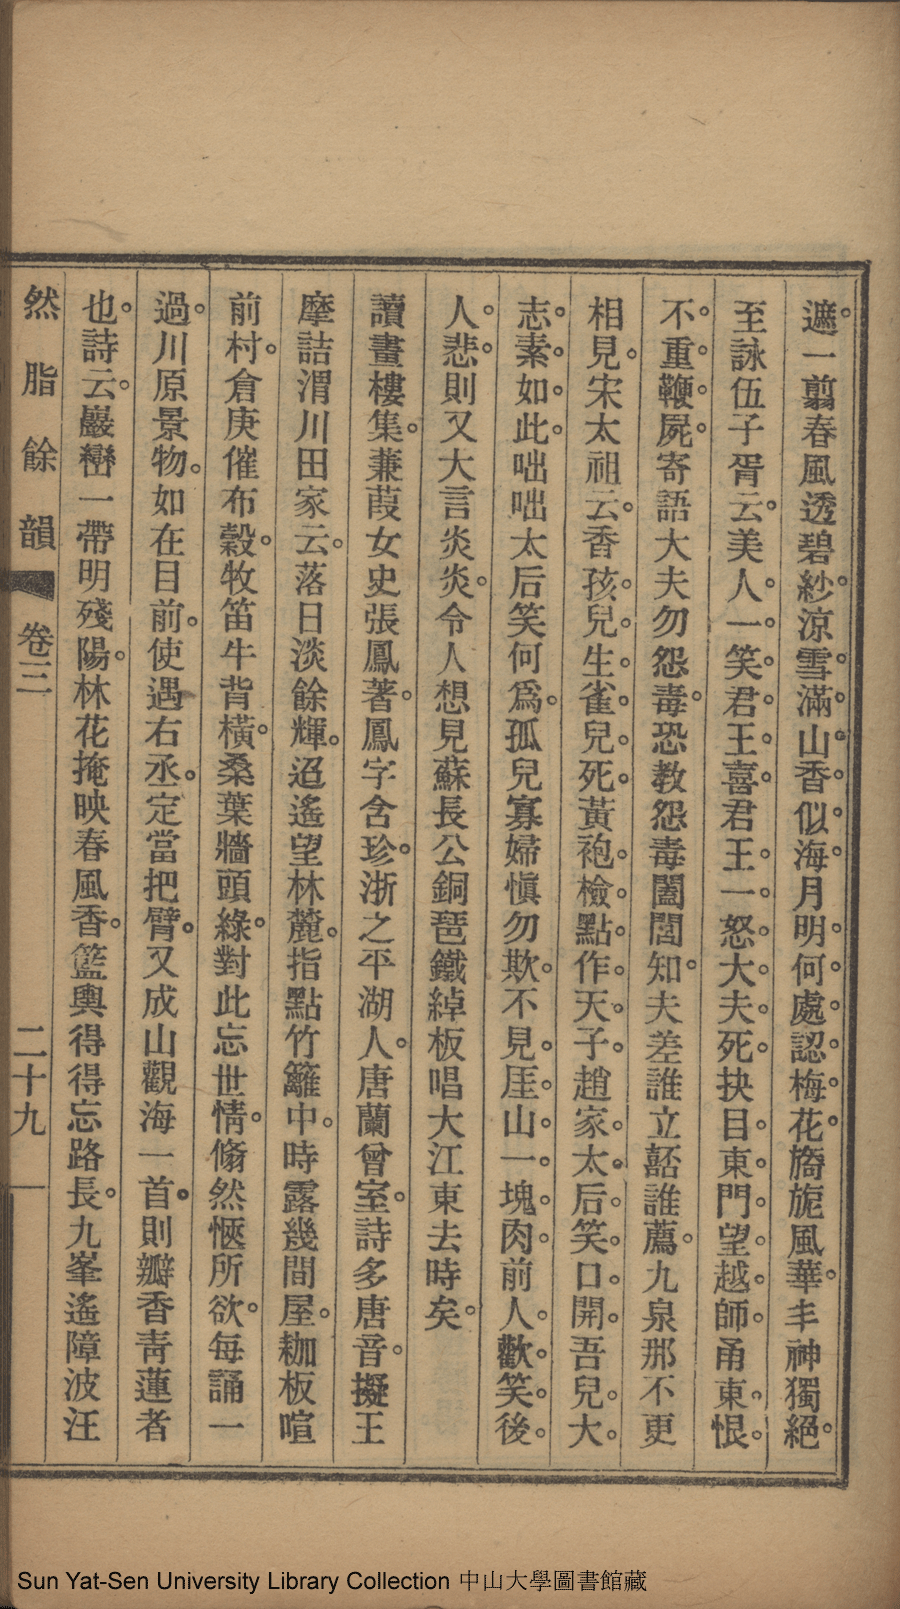 遮一翦春風透碧紗涼雪滿山香似海月明何處認梅花旖旎風華丰神獨絕
至詠伍子胥云美人一笑君王喜君王一怒大夫死抉目東門望越師甬東恨
不重鞭屍寄語大夫勿怨毒恐教怨毒闔閭知夫差誰立嚭誰薦九泉那不更
相見宋太祖云香孩兒生雀兒死黃袍檢點作天子趙家太后笑口開吾兒大
志素如此咄咄太后笑何爲孤兒寡婦愼勿欺不見厓山一塊肉前人歡笑後
人悲則又大言炎炎令人想見蘇長公銅琶鐵綽板唱大江東去時矣
讀畫樓集蒹葭女史張鳳著鳳字含珍浙之平湖人唐蘭曾室詩多唐音擬王
摩詰渭川田家云落日淡餘輝迢遙望林麓指點竹籬中時露幾間屋耞板喧
前村倉庚催布穀牧笛牛背橫桑葉牆頭綠對此忘世情翛然愜所欲每誦一
過川原景物如在目前使遇右丞定當把臂又成山觀海一首則瓣香靑蓮者
也詩云巖巒一帶明殘陽林花掩映春風香籃輿得得忘路長九峯遙障波汪
然脂餘韻 卷三 二十九
Sun Yat-Sen University Library Collection 中山大學圖書館藏